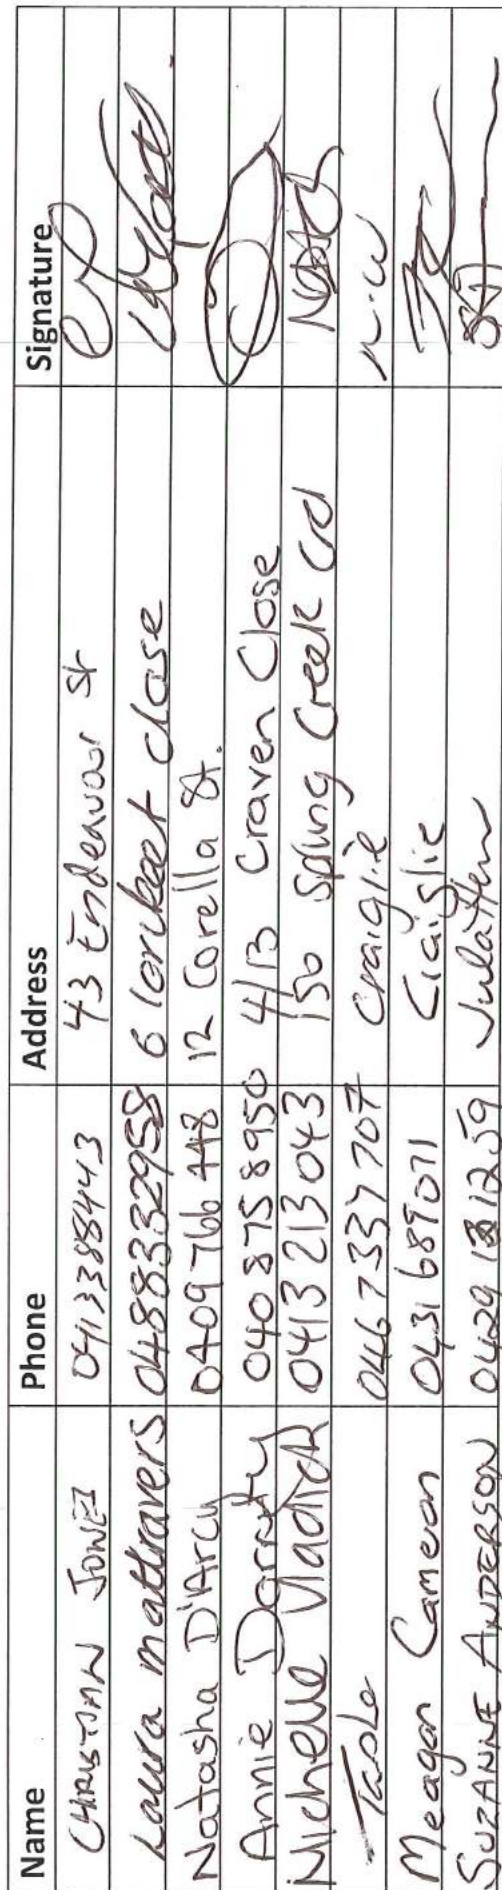 Name Phone Address Signature
CHRISTIAN JONES 0413388443 43 Endeavour St
Laura mattravers 0488332958 6 lorikeet close
Natasha D'Arcy 0409 766 448 12 Corella St.
Annie 040 875 8950 4/13 Craven Close
Michelle Vladich 0413 213 043 156 Spring Creek rd
0467 337 707 Craiglie
Meagan Cameon 0431 689071 Craiglie
SUZANNE ANDERSON 0429 Julatten